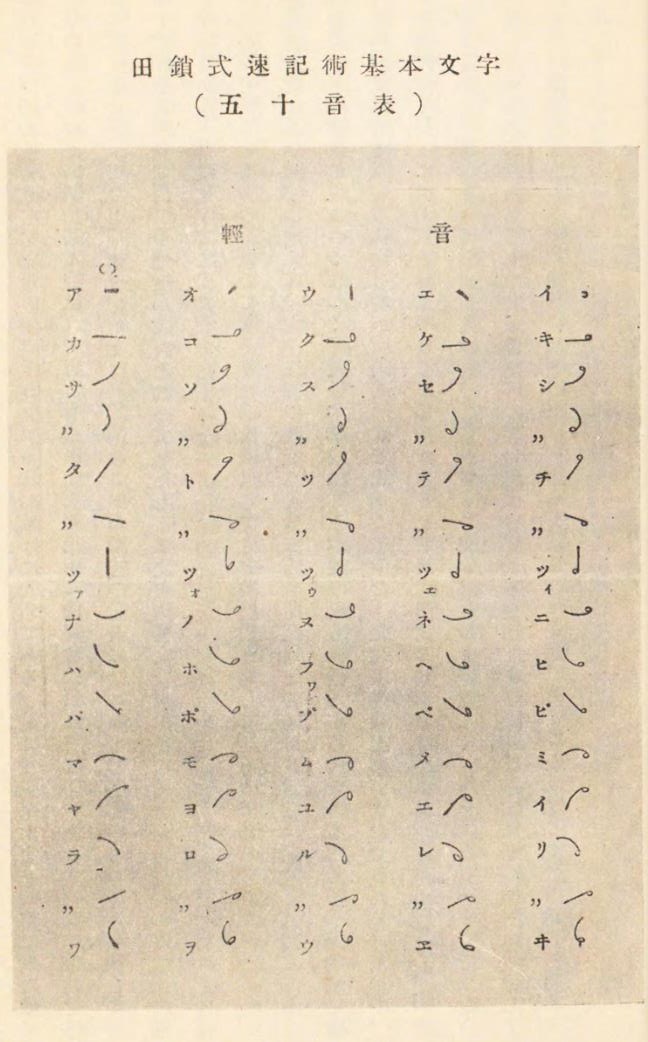 田鎖式速記術基本文字
(五十音表)
輕音
ア オ ウ エ イ
カ コ ク ケ キ
サ ソ ス セ シ
〃 〃 〃 〃 〃
タ ト ツ テ チ
〃 〃 〃 〃 〃
ツァ ツォ ツゥ ツェ ツィ
ナ ノ ヌ ネ ニ
ハ ホ フ ヘ ヒ
ポ ペ ピ
マ モ ム メ ミ
ヤ ヨ ユ エ イ
ラ ロ ル レ リ
〃 〃 〃 〃 〃
ワ ヲ ウ ヱ ヰ